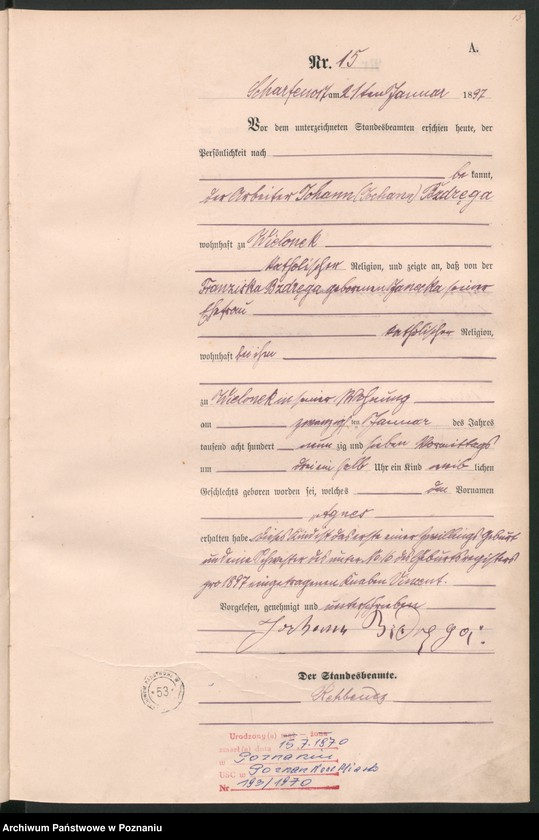 A.
Nr. 15
Scharfenort am 21ten Januar 1897
Vor dem unterzeichneten Standesbeamten erschien heute, der
Persönlichkeit nach
be kannt,
der Arbeiter Johann (Johann) Bzdręga
wohnhaft zu Wielonek
katholischer Religion, und zeigte an, daß von der
Franziska Bzdręga geborenen Janecka seiner
Ehefrau
katholischer Religion,
wohnhaft bei ihm
zu Wielonek in seiner Wohnung
am zwanzigsten Januar des Jahres
tausend acht hundert neun zig und sieben Vormittags
um drei ein halb Uhr ein Kind weib lichen
Geschlechts geboren worden sei, welches den Vornamen
Agnes
erhalten habe. Dieses Kind ist das erste einer Zwillings Geburt
und eine Schwester des unter No 16 des Geburtsregisters
pro 1897 eingetragenen Knaben Vincent.
Vorgelesen, genehmigt und unterschrieben
Johann Bzdręga
Der Standesbeamte.
53
zmarł(a) dnia 15.7.1970
w Poznaniu
USC w Poznań
Nr 193/1970
Archiwum Państwowe w Poznaniu